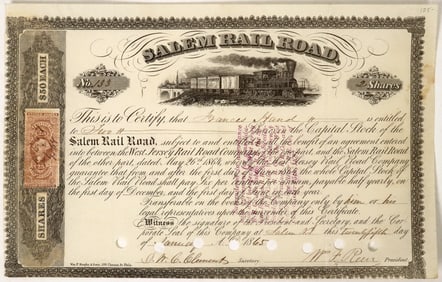 125-
SALEM RAIL ROAD.
No.
Shares
$50 EACH
SHARES
This is to Certify, that Frances Hand is entitled
to Two Shares in the Capital Stock of the
Salem Rail Road, subject to and entitled to all the benefit of an agreement entered
into between the West Jersey Rail Road Company of the one part, and the Salem Rail Road
of the other part, dated, May 26th 1864, whereby the West Jersey Rail Road Company
guarantee that from and after the first the whole Capital Stock of
the Salem Rail Road shall pay Six per cent per annum, payable half yearly, on
the first day of December, and the first day of June in each year.
Transferable on the books of the Company only by them or his
legal representatives upon surrender of this Certificate.
Witness the signature of the President and Secretary, and the Cor
porate Seal of this Company at Salem N.J. this twenty fifth day
of January A.D. 1865
Secretary
President